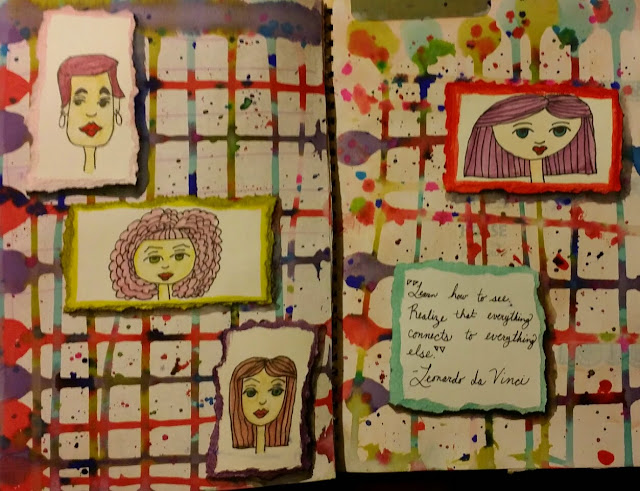 "Learn how to see.
Realize that everything
connects to everything
else."
-Leonardo da Vinci